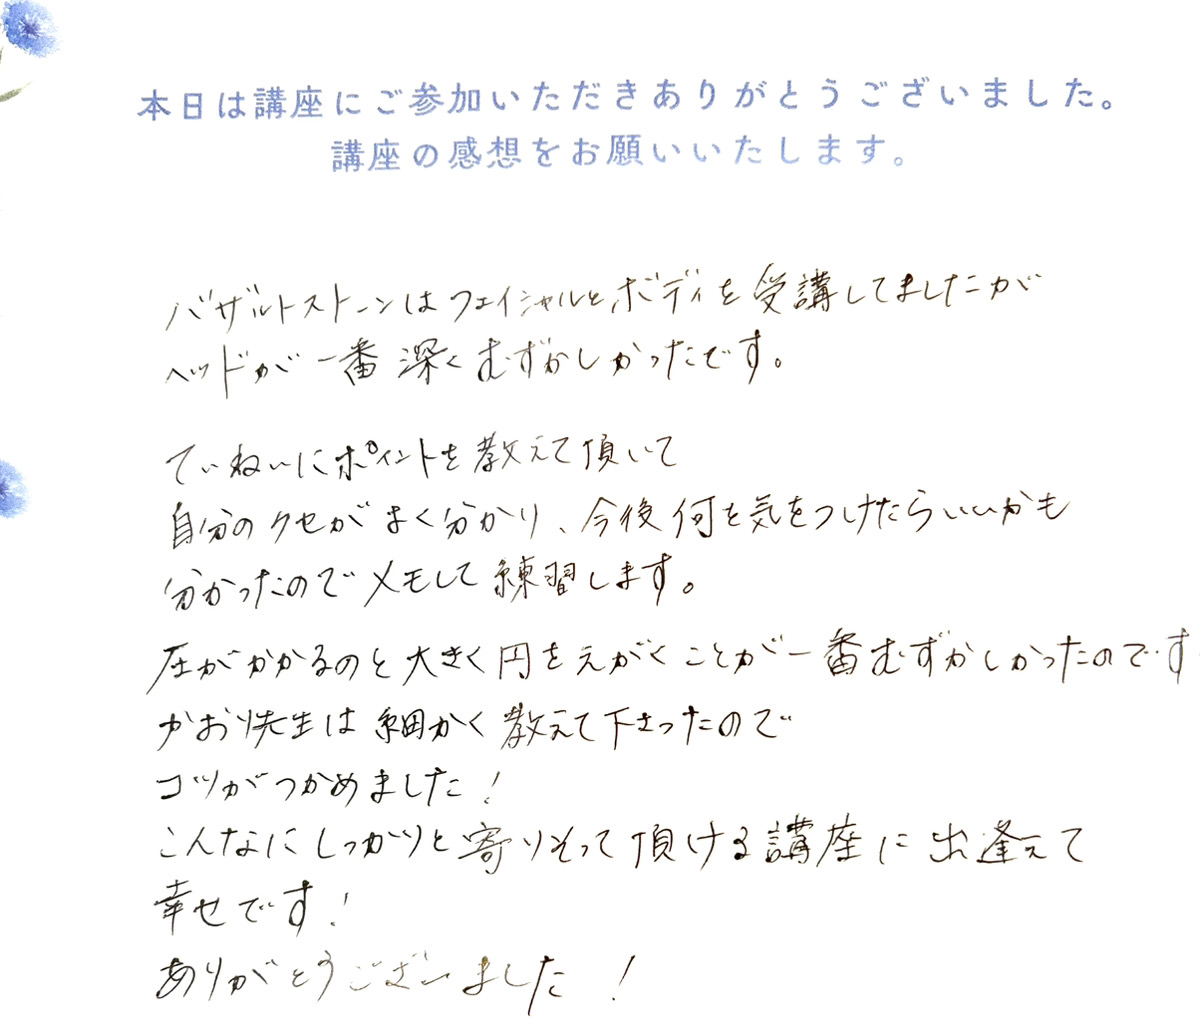 本日は講座にご参加いただきありがとうございました。
講座の感想をお願いいたします。
バザルトストーンはフェイシャルとボディを受講してましたが
ヘッドが一番深くむずかしかったです。
ていねいにポイントを教えて頂いて
自分のクセがよく分かり、今後何を気をつけたらいいかも
分かったのでメモして練習します。
圧がかかるのと大きく円をえがくことが一番むずかしかったのです
かおり先生は細かく教えて下さったので
コツがつかめました！
こんなにしっかりと寄りそって頂ける講座に出逢えて
幸せです！
ありがとうございました！